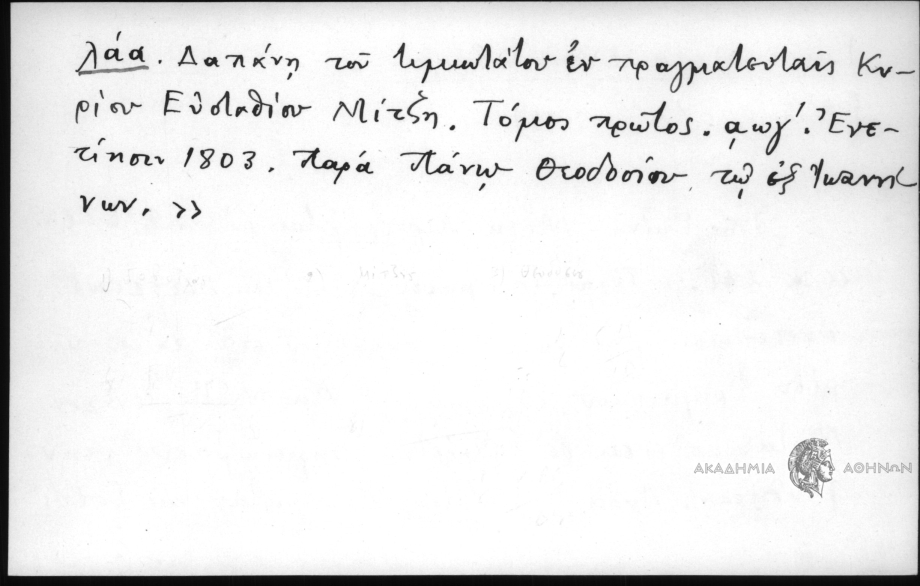 λάα. Δαπάνη τοῦ τιμιωτάτου ἐν πραγματευταῖς Κυ-
ρίου Εὐσταθίου Ντίτζη. Τόμος πρῶτος. αωγ'. Ἐνε-
τίησιν 1803. Παρά Πάνῳ Θεοδοσίου τῷ ἐξ Ἰωαννί
νων. >>
ΑΚΑΔΗΜΙΑ ΑΘΗΝΩΝ